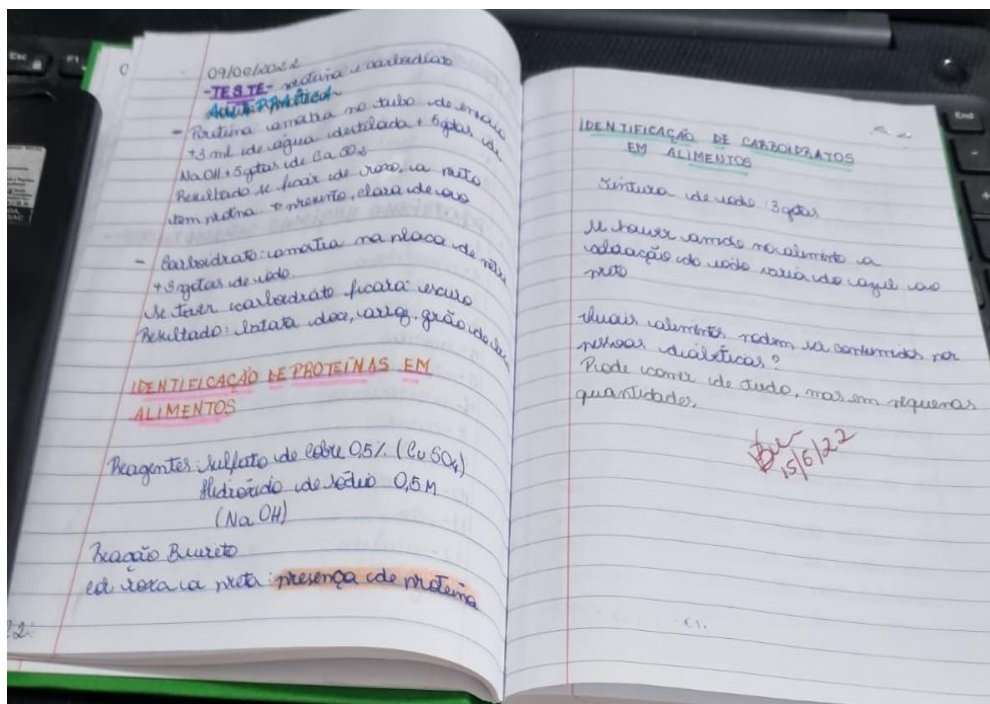 09/06/2022
-TESTE- proteína e carboidrato
AULA PRÁTICA
- Proteína: amostra no tubo de ensaio
+3 ml de água destilada + 5 gotas de
NaOH + 5 gotas de
Resultado se ficar de roxo, a preto
tem presunto, clara de ovo
- Carboidrato: amostra na placa de petri
+3 gotas de iodo.
se tiver carboidrato ficará escuro
Resultado: batata doce, arroz, grão de
IDENTIFICAÇÃO DE PROTEÍNAS EM
ALIMENTOS
Reagentes: Sulfato de Cobre 0,5% (CuSO4)
Hidróxido de sódio 0,5M
(NaOH)
Reação Biureto
cor roxa a preta: presença de proteína
IDENTIFICAÇÃO DE CARBOIDRATOS
EM ALIMENTOS
Tintura de iodo: 3 gotas
se houver amido no alimento a
do iodo varia do azul ao
preto
Quais alimentos podem ser consumidos por
pessoas diabéticas?
Pode comer de tudo, mas em pequenas
quantidades.
15/6/22
Esc
F1
End